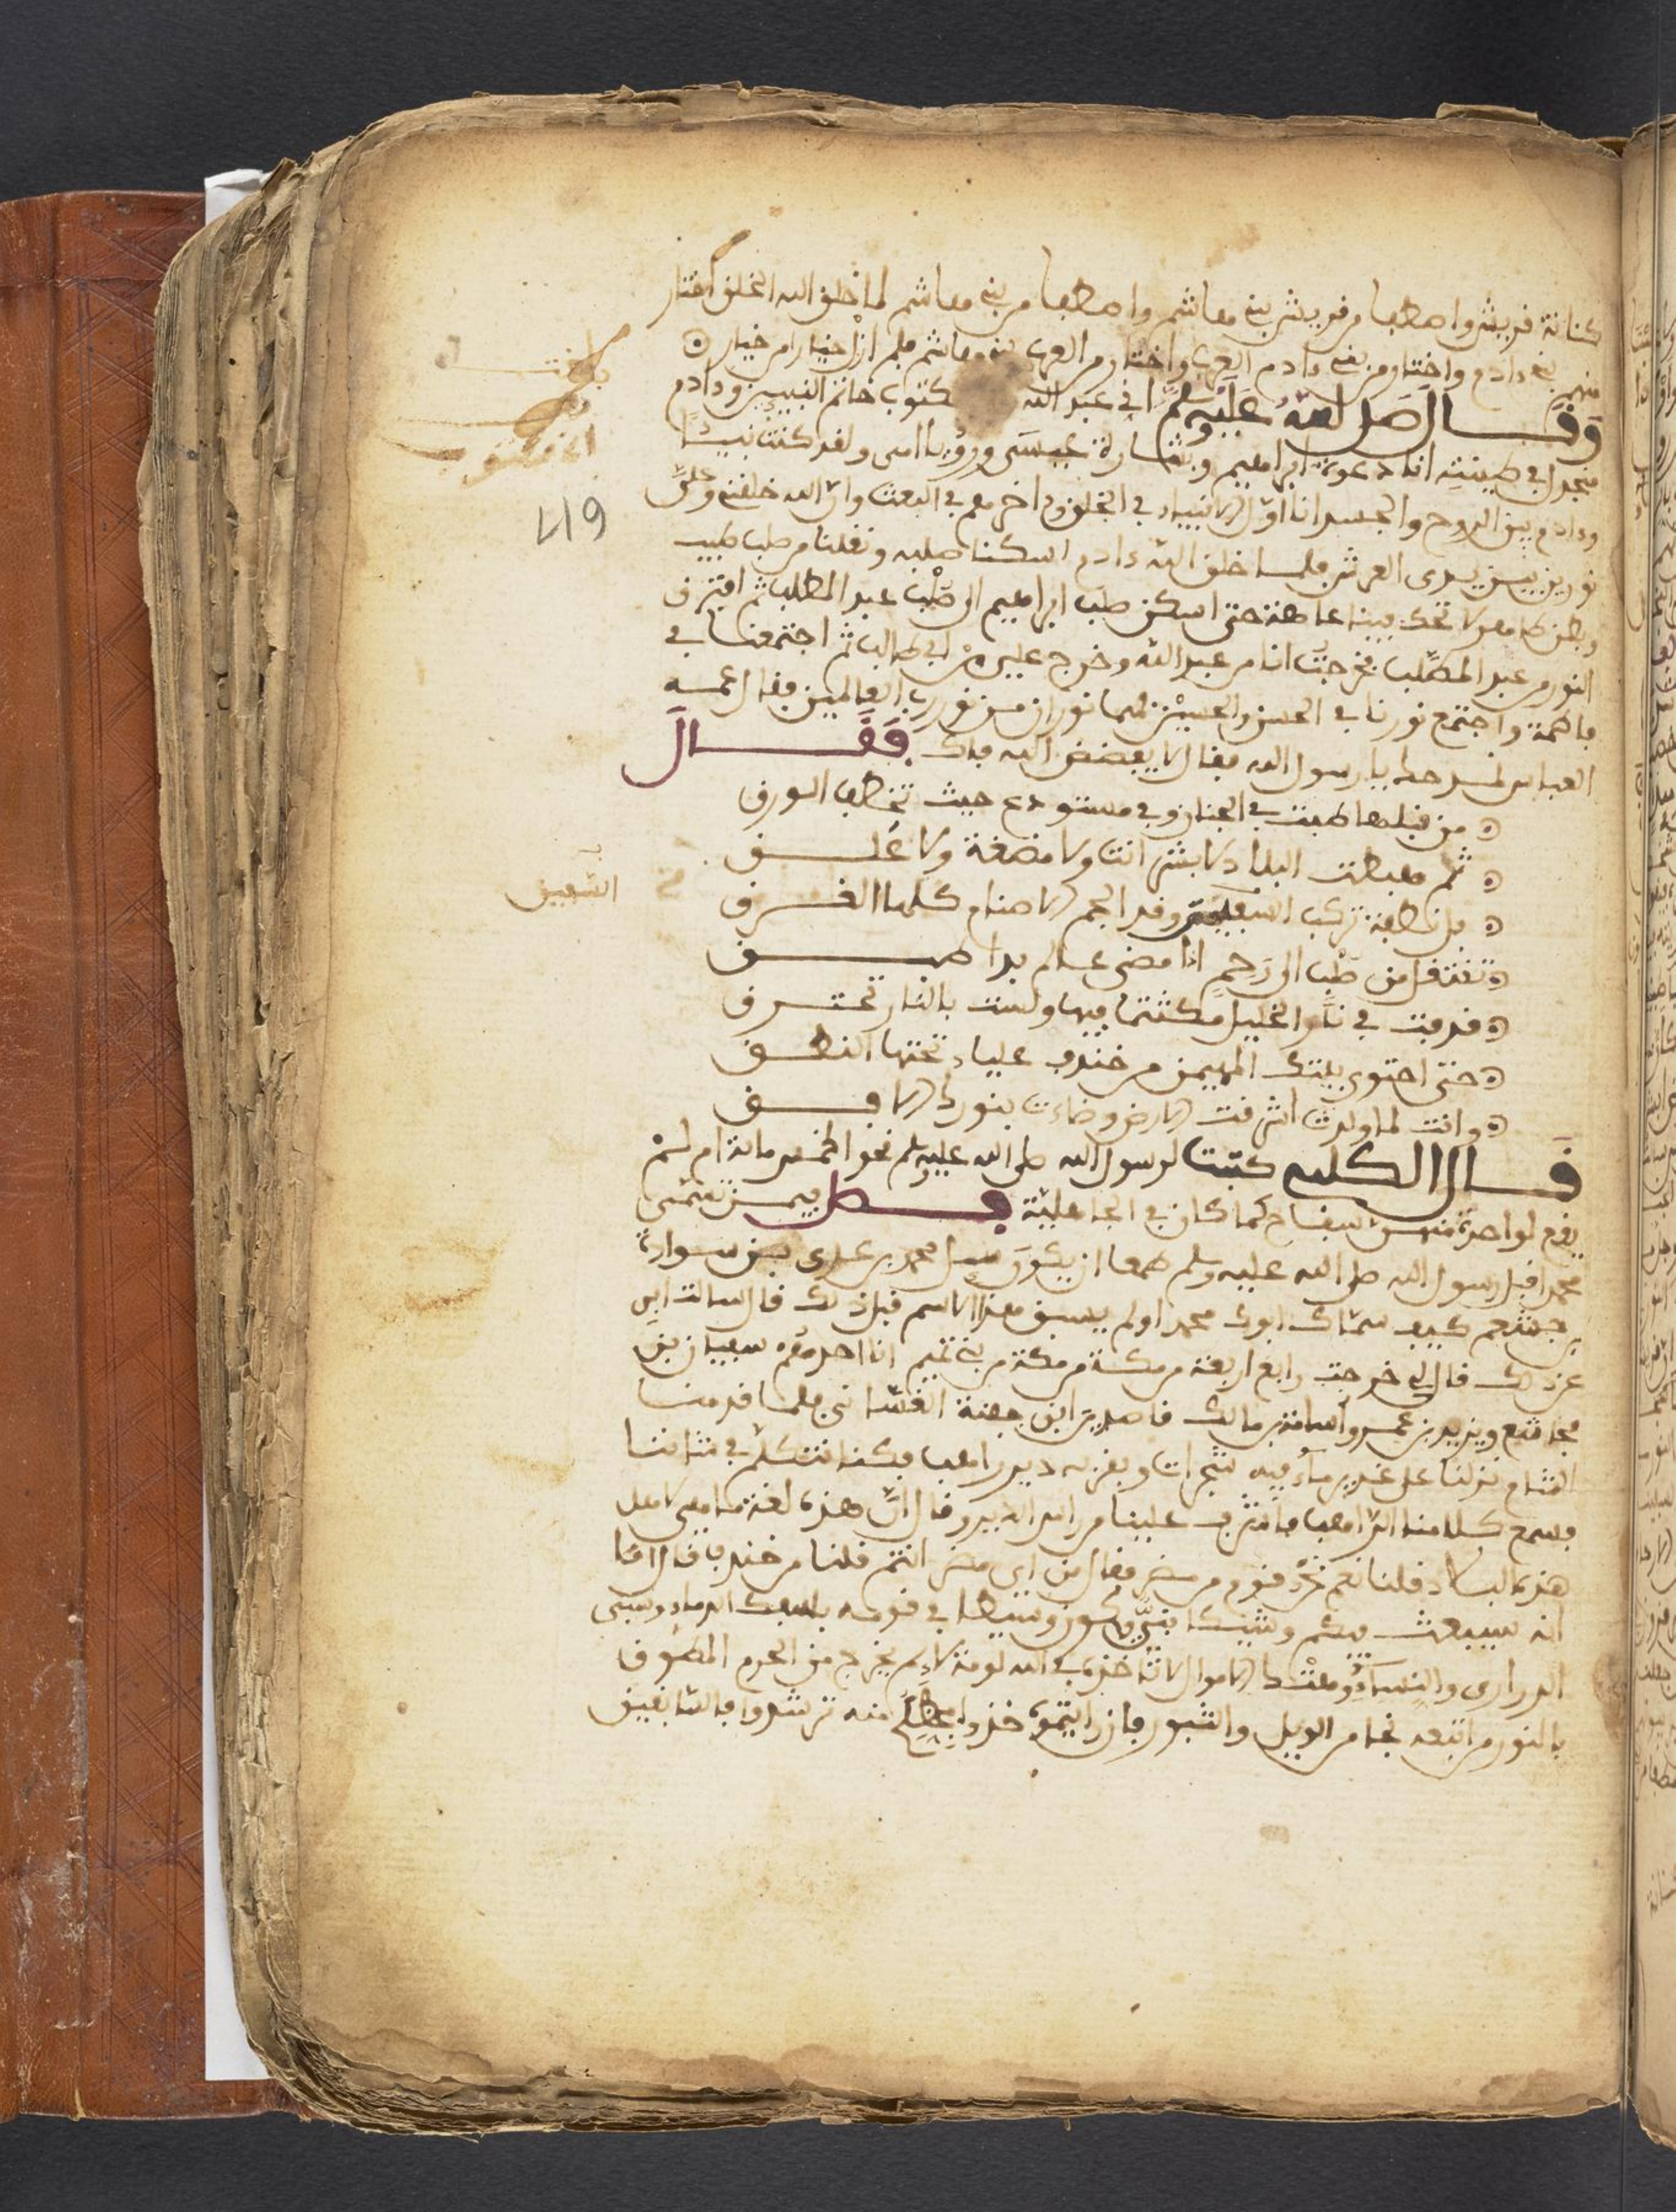 كنانة قريش واصطفا من قريش بني هاشم واصطفا من بني هاشم لما خلق الله الخلق اختار
منهم بني ءادم واختار من بني ءادم العرب واختار من العرب بني هاشم فلم ازل خيارا من خيار
وقال صلى الله عليه وسلم اني عبد الله مكتوب خاتم النبيين وءادم
منجدل في طينته انا دعوة ابراهيم وبشارة عيسى ورؤيا امي ولقد كنت نبيئا
وءادم بين الروح والجسد انا اول الانبياء في الخلق وءاخرهم في البعث وان الله خلقني وعلي
نورين بين يدي العرش فلما خلق الله ءادم اسكنا صلبه ونقلنا من صلب طيب
وبطن طاهر لا تحك بيننا عاهة حتى اسكن صلب ابراهيم الى صلب عبد المطلب ثم افترق
النور من عبد المطلب فخرجت انا من عبد الله وخرج علي من ابي طالب ثم اجتمعنا في
فاطمة واجتمع نورنا في الحسن والحسين فهما نوران من نور رب العالمين فقال عمه
العباس يا رسول الله فقال لا يفضض الله فاك فقال
من قبلها طبت في الجنان وفي مستودع حيث تخطف الورق
ثم هبطت البلاد لا بشر انت ولا مضغة ولا علق
بل نطفة تركب السفين وقد الجم الاصنام كلها الغرق
تنتقل من صلب الى رحم اذا مضى عالم بدا طبق
قد في نار الخليل مكتتما فيها ولست بالنار تحترق
حتى احتوى بيتك المهيمن من خندف علياء تحتها النطق
وانت لما ولدت اشرقت الارض وضاءت بنورك الافق
السفين
قال الكلبي كتبت لرسول الله صلى الله عليه وسلم نحو الخمسمائة ام لم
يقع لواحدة منهن سفاح كما كان في الجاهلية فصل فيمن تسمى
محمدا قبل رسول الله صلى الله عليه وسلم طمعا ان يكون سيل محمد بن عدي بن سواءة
بن جشعم كيف سماك ابوك محمدا ولم يسبق هذا الاسم قبل ذلك قال سالت ابي
عن ذلك قال لي خرجت رابع اربعة من مكة من مكة من بني تميم انا احدهم سفيان بن
مجاشع ويزيد بن عمرو واسامة بن مالك قاصدين ابن جفنة الغساني فلما قدمنا
الشام نزلنا على غدير ماء فيه شجرات وبقربه دير راهب فكنا نتكلم في شاننا
فسمع كلامنا الراهب فاشرف علينا من راس الدير وقال ان هذه لغة ما هي لاهل
هذه البلاد فقلنا نعم نحن قوم من مضر فقال من اي مضر انتم قلنا من خندف قال اما
انه سيبعث فيكم وشيكا نبي يكون وسيطا في قومه الدماء وسبي
الدراري والنساء وهتك الاموال لا تاخذه في الله لومة لائم يخرج من الحرم المطوق
بالنور من اتبعه نجا من الويل والثبور فان رايتموه خذوا بحظكم منه ترشدوا فالسابقين
419